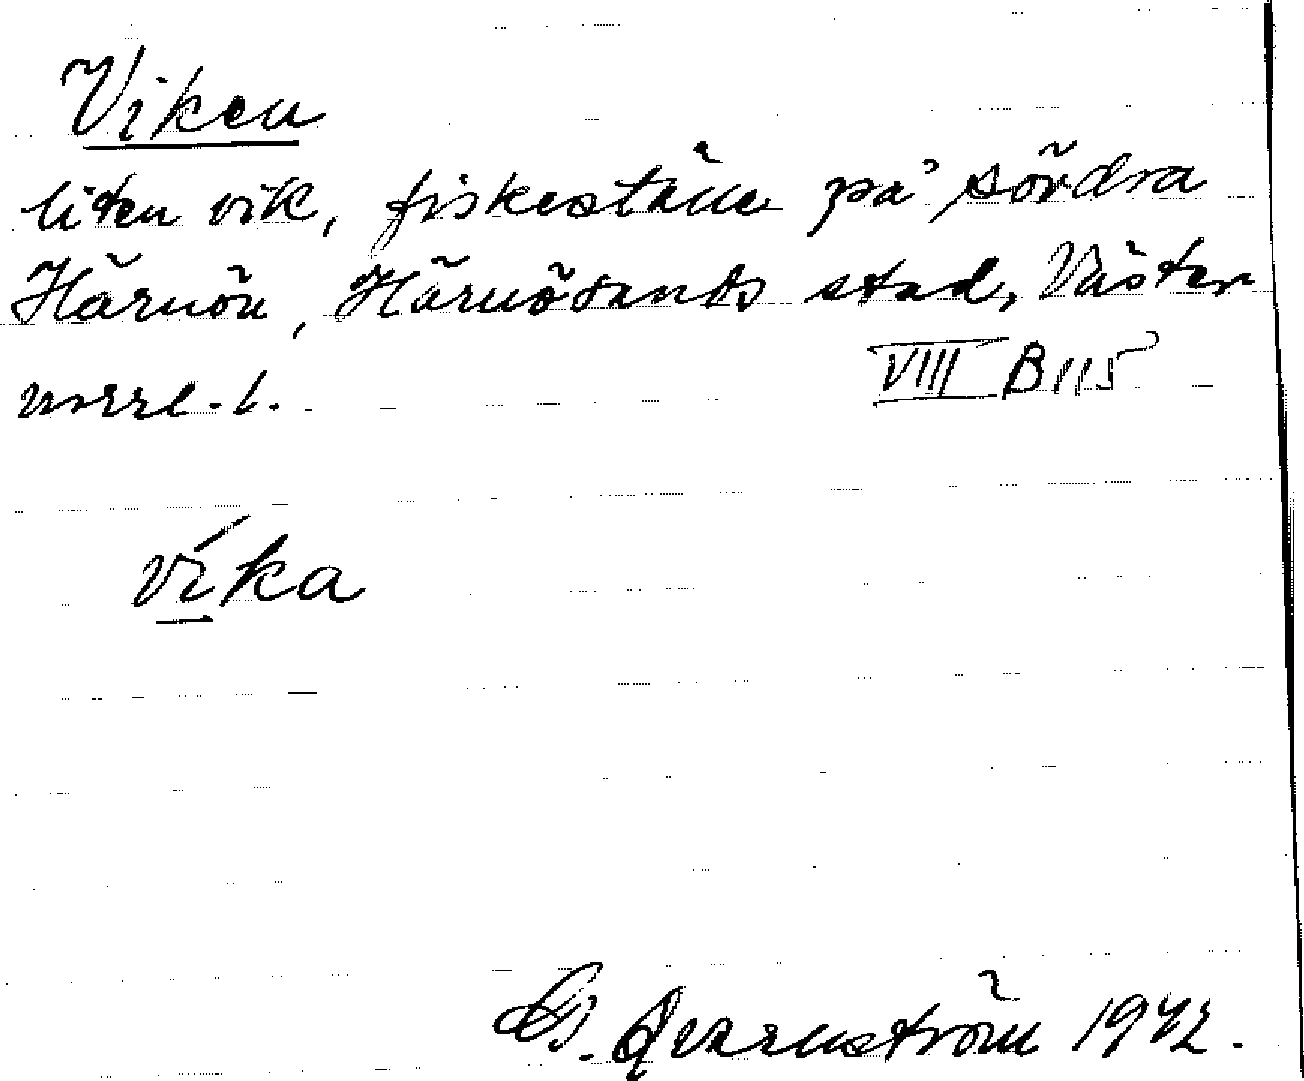 Viken
liten vik, fiskeställe på södra
Härnön, Härnösands stad, Väster
norrl. l.
VIII B 115
víka
G. Qvarnström 1942.